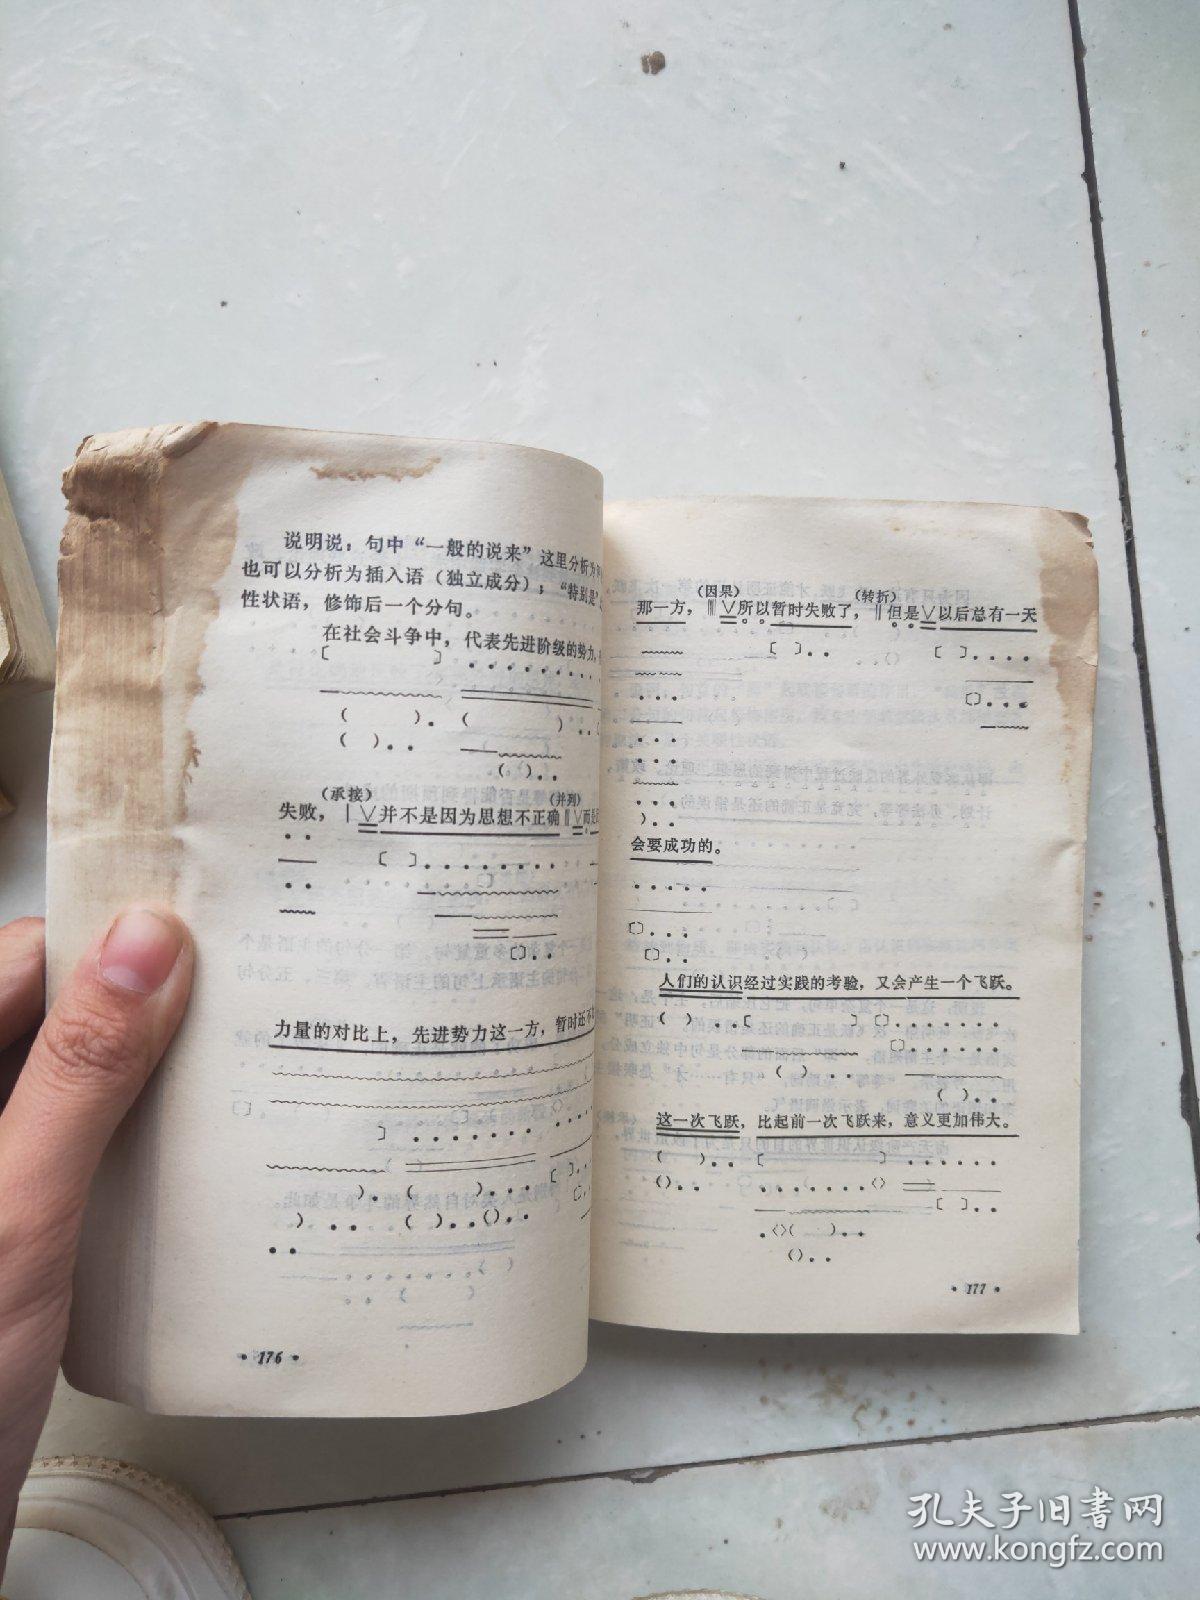 说明说：句中“一般的说来”这里分析为
也可以分析为插入语（独立成分）；“特别是”
性状语，修饰后一个分句。
在社会斗争中，代表先进阶级的势力，
（承接） （并列）
失败，‖∨并不是因为思想不正确⦀∨而是
力量的对比上，先进势力这一方，暂时还不
· 176 ·
（因果） （转折）
那一方，⦀∨所以暂时失败了，‖但是∨以后总有一天
会要成功的。
人们的认识经过实践的考验，又会产生一个飞跃。
这一次飞跃，比起前一次飞跃来，意义更加伟大。
· 177 ·
孔夫子旧书网
www.kongfz.com